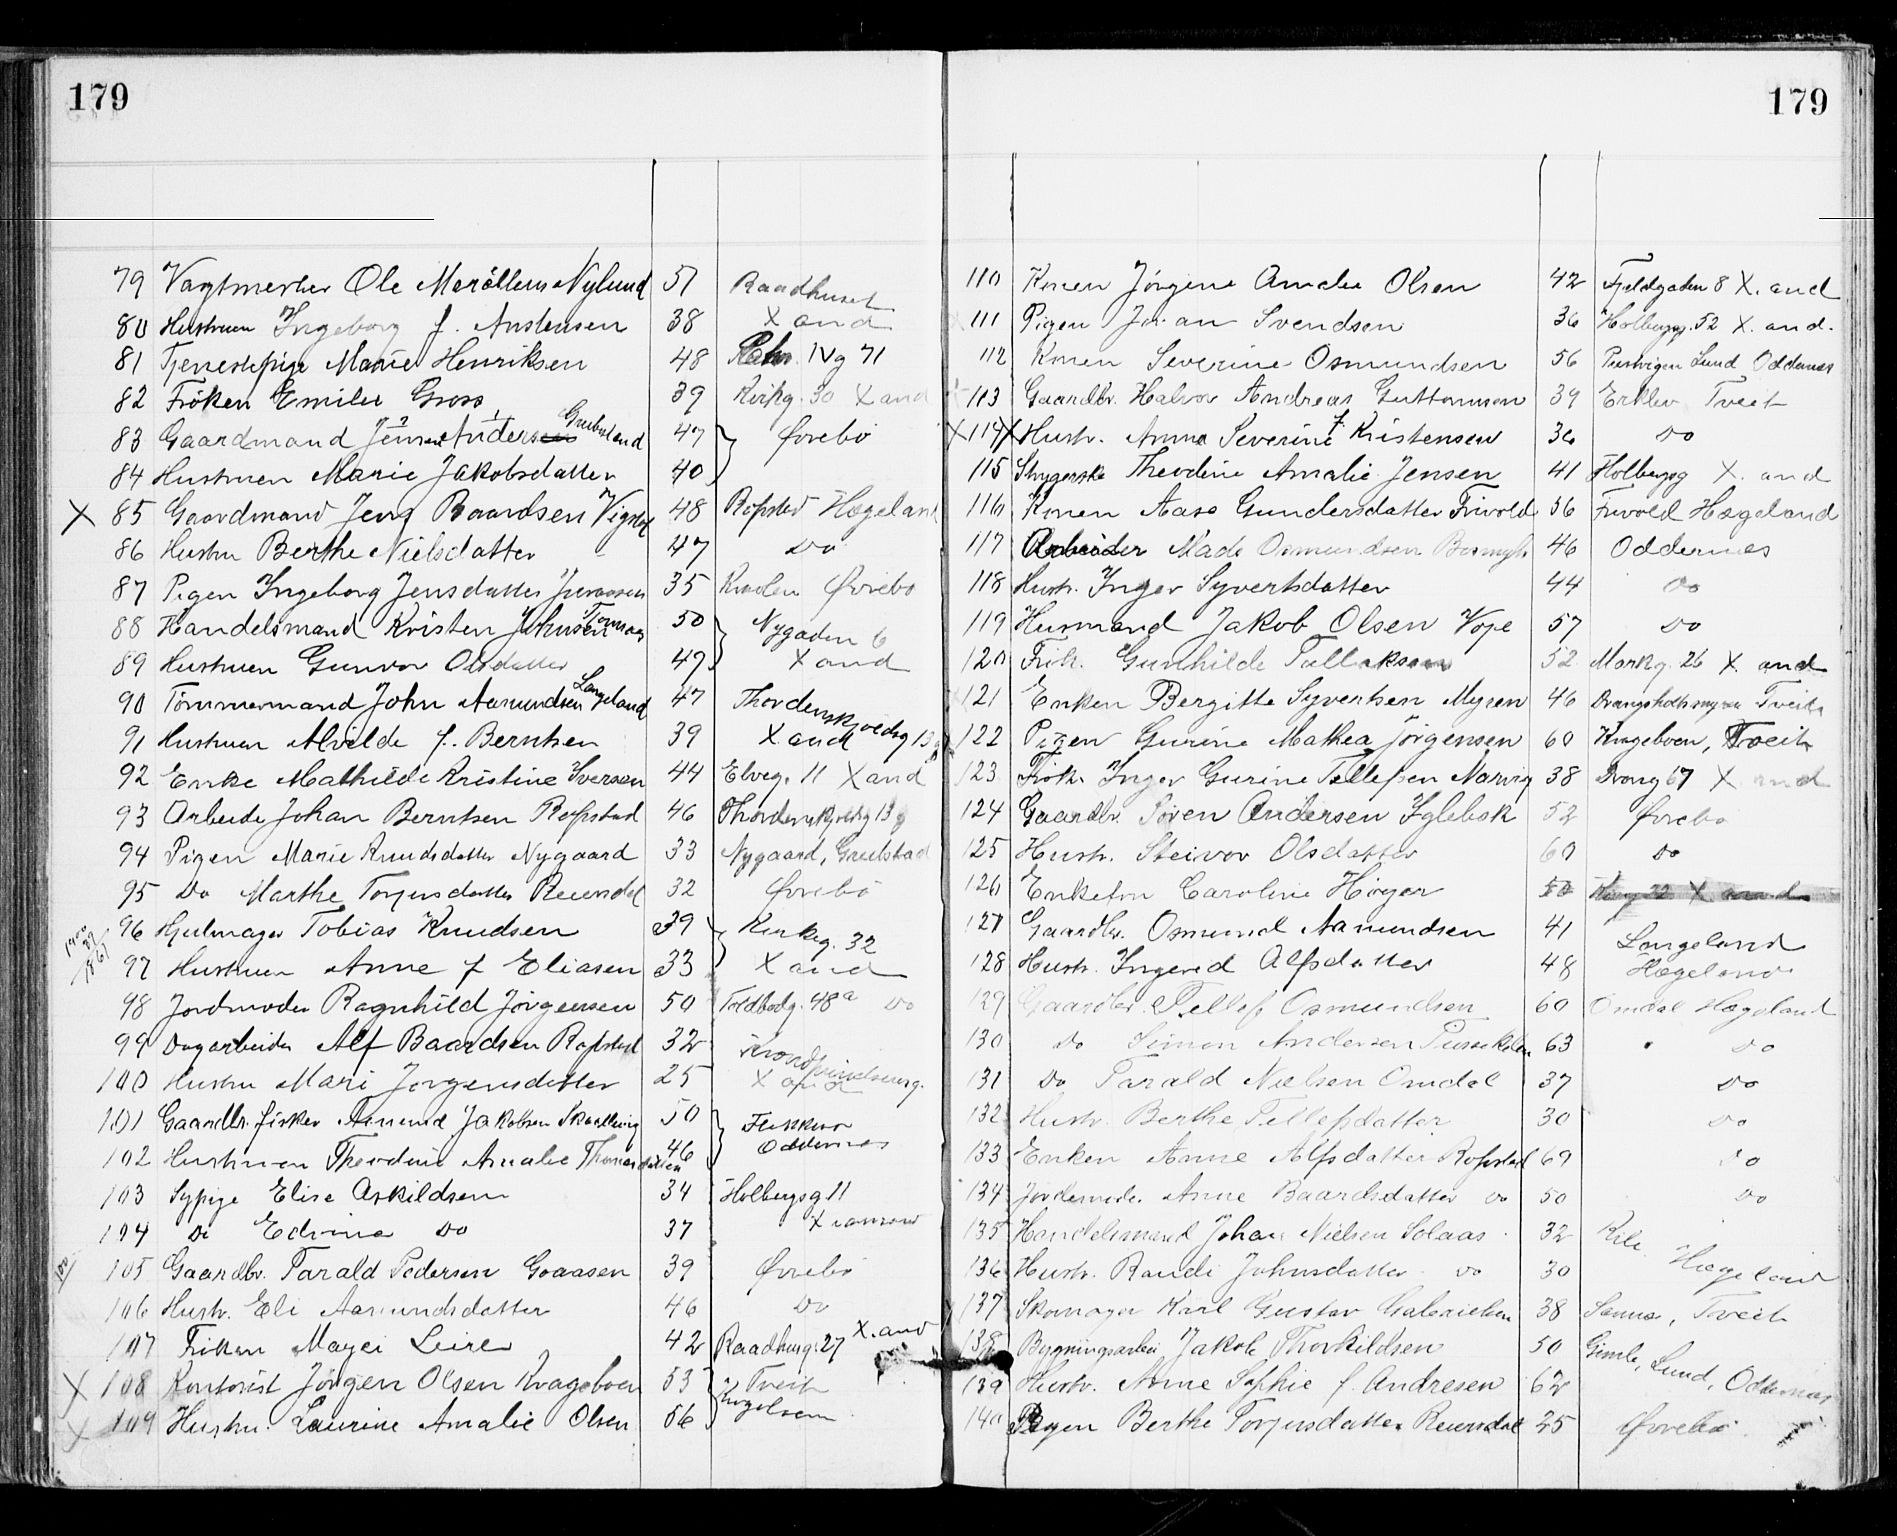 179
79 Vagtmester Ole Nylund 51 Raadhuset
80 Hustruen Ingeborg f. Anstensen 38 X and
81 Tjenestepige Marie Henriksen 48 71
82 Fröken Emilie Gross 39 Kirkg. 30 X and
83 Gaardmand Jens Anders 47 Øvrebö
84 Hustruen Marie Jakobsdatter 40
X 85 Gaardmand Jens Baardsen 48 Ropstad Hægeland
86 Hustru Berthe Nielsdatter 47 Do
87 Pigen Ingeborg Jensdatter 35 Øvrebö
88 Handelsmand Kristen Johnsen 50 Nygaden 6
89 Hustruen Gunvor Olsdatter 49 X and
90 Tömmermand John Aamundsen Langeland 47 Thordenskjoldsg 13
91 Hustruen Alvilde f. Berntsen 39 X and
92 Enke Mathilde Kristine Iversen 44 Elveg. 11 X and
93 Arbeide Johan Berntsen Ropstad 46 Thordenskjoldsg 13
94 Pigen Marie Knudsdatter Nygaard 33 Nygaard,
95 Do Marthe Torjusdatter Reiersdal 32 Øvrebö
96 Hjulmager Tobias Knudsen 39 Kirkeg. 32
97 Hustruen Anne f Eliasen 33 X and
98 Jordmoder Ragnhild Jörgensen 50 Toldbodg. 48a Do
99 Dagarbeider Alf Baardsen Ropstad 32
100 Hustru Mari Jörgensdatter 25 X and
101 Gaardbr. fisker Aanund Jakobsen 50 Flekkerö
102 Hustruen Theodine Amalie Thomasdatter 46 Oddernes
103 Sypige Elise Askildsen 34 Holbergsg 11
104 Do Edvine Do 37
105 Gaardbr. Tarald Pedersen Goaasen 39 Øvrebö
106 Hustr. Eli Aamundsdatter 46 Do
107 Fröken Leire 42 Raadhusg. 27 X. and
X 108 Kontorist Jörgen Olsen Kvageboen 53 Tveit
X 109 Hustru Laurine Amalie Olsen 56
179
110 Konen Jörgine Amalie Olsen 42 Fjeldgaden 8 X. and
111 Pigen Svendsen 36 Holbergsg. 52 X. and.
112 Konen Severine Osmundsen 56 Lund Oddernes
113 Gaardbr. Halvor Andreas Guttormsen 39 Erklev Tveit
X 114 X Hustr. Anna Severine f Kristensen 36 Do
115 Strygerske Theodine Amalie Jensen 41 Holbergsg X. and
116 Konen Aase Gundersdatter Frivold 56 Frivold Hægeland
117 Arbeider Mads Osmundsen 46 Oddernes
118 Hustr. Inger Syvertsdatter 44 Do
119 Husmand Jakob Olsen 57 Do
120 Frök. Gunhilde Tallaksen 32 Markg. 26 X. and
121 Enken Bergitte Syvertsen Myren 46 Drangsholtsmyren Tveit
122 Pigen Gurine Mathea Jörgensen 60 Krageboen, Tveit
123 Frök. Inger Gurine Tellefsen 38 Drong 67 X and
124 Gaardbr. Sören Andersen Iglebæk 52 Øvrebö
125 Hustr. Steivor Olsdatter 60 Do
126 Enkefru Caroline Höyer
127 Gaardbr. Osmund Aamundsen 41 Langeland
128 Hustr. Ingerid Alfsdatter 48 Hægeland
129 Gaardbr. Tellef Osmundsen 60 Omdal Hægeland
130 Do Simon Andersen 63 Do
131 Do Tarald Nielsen Omdal 37 Do
132 Hustr. Berthe Tellefsdatter 30 Do
133 Enken Anne Alfsdatter Ropstad 69 Do
134 Jordemode. Anne Baardsdatter Do 50 Do
135 Handelsmand Johan Nielsen Solaas 32 Kile
136 Hustr. Randi Johnsdatter Do 30 Hægeland
137 Skomager Karl Gustav Gabrielsen 38 Tveit
138 Bygningsarbei Jakob Thorkildsen 50 Gimle, Lund, Oddernes
139 Hustr. Anne Sophie f. Andresen 62
140 Pigen Berthe Torjusdatter Reiersdal 25 Øvrebö